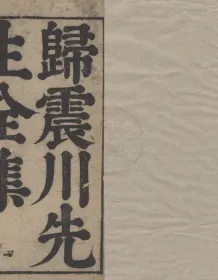 歸震川先
生全集